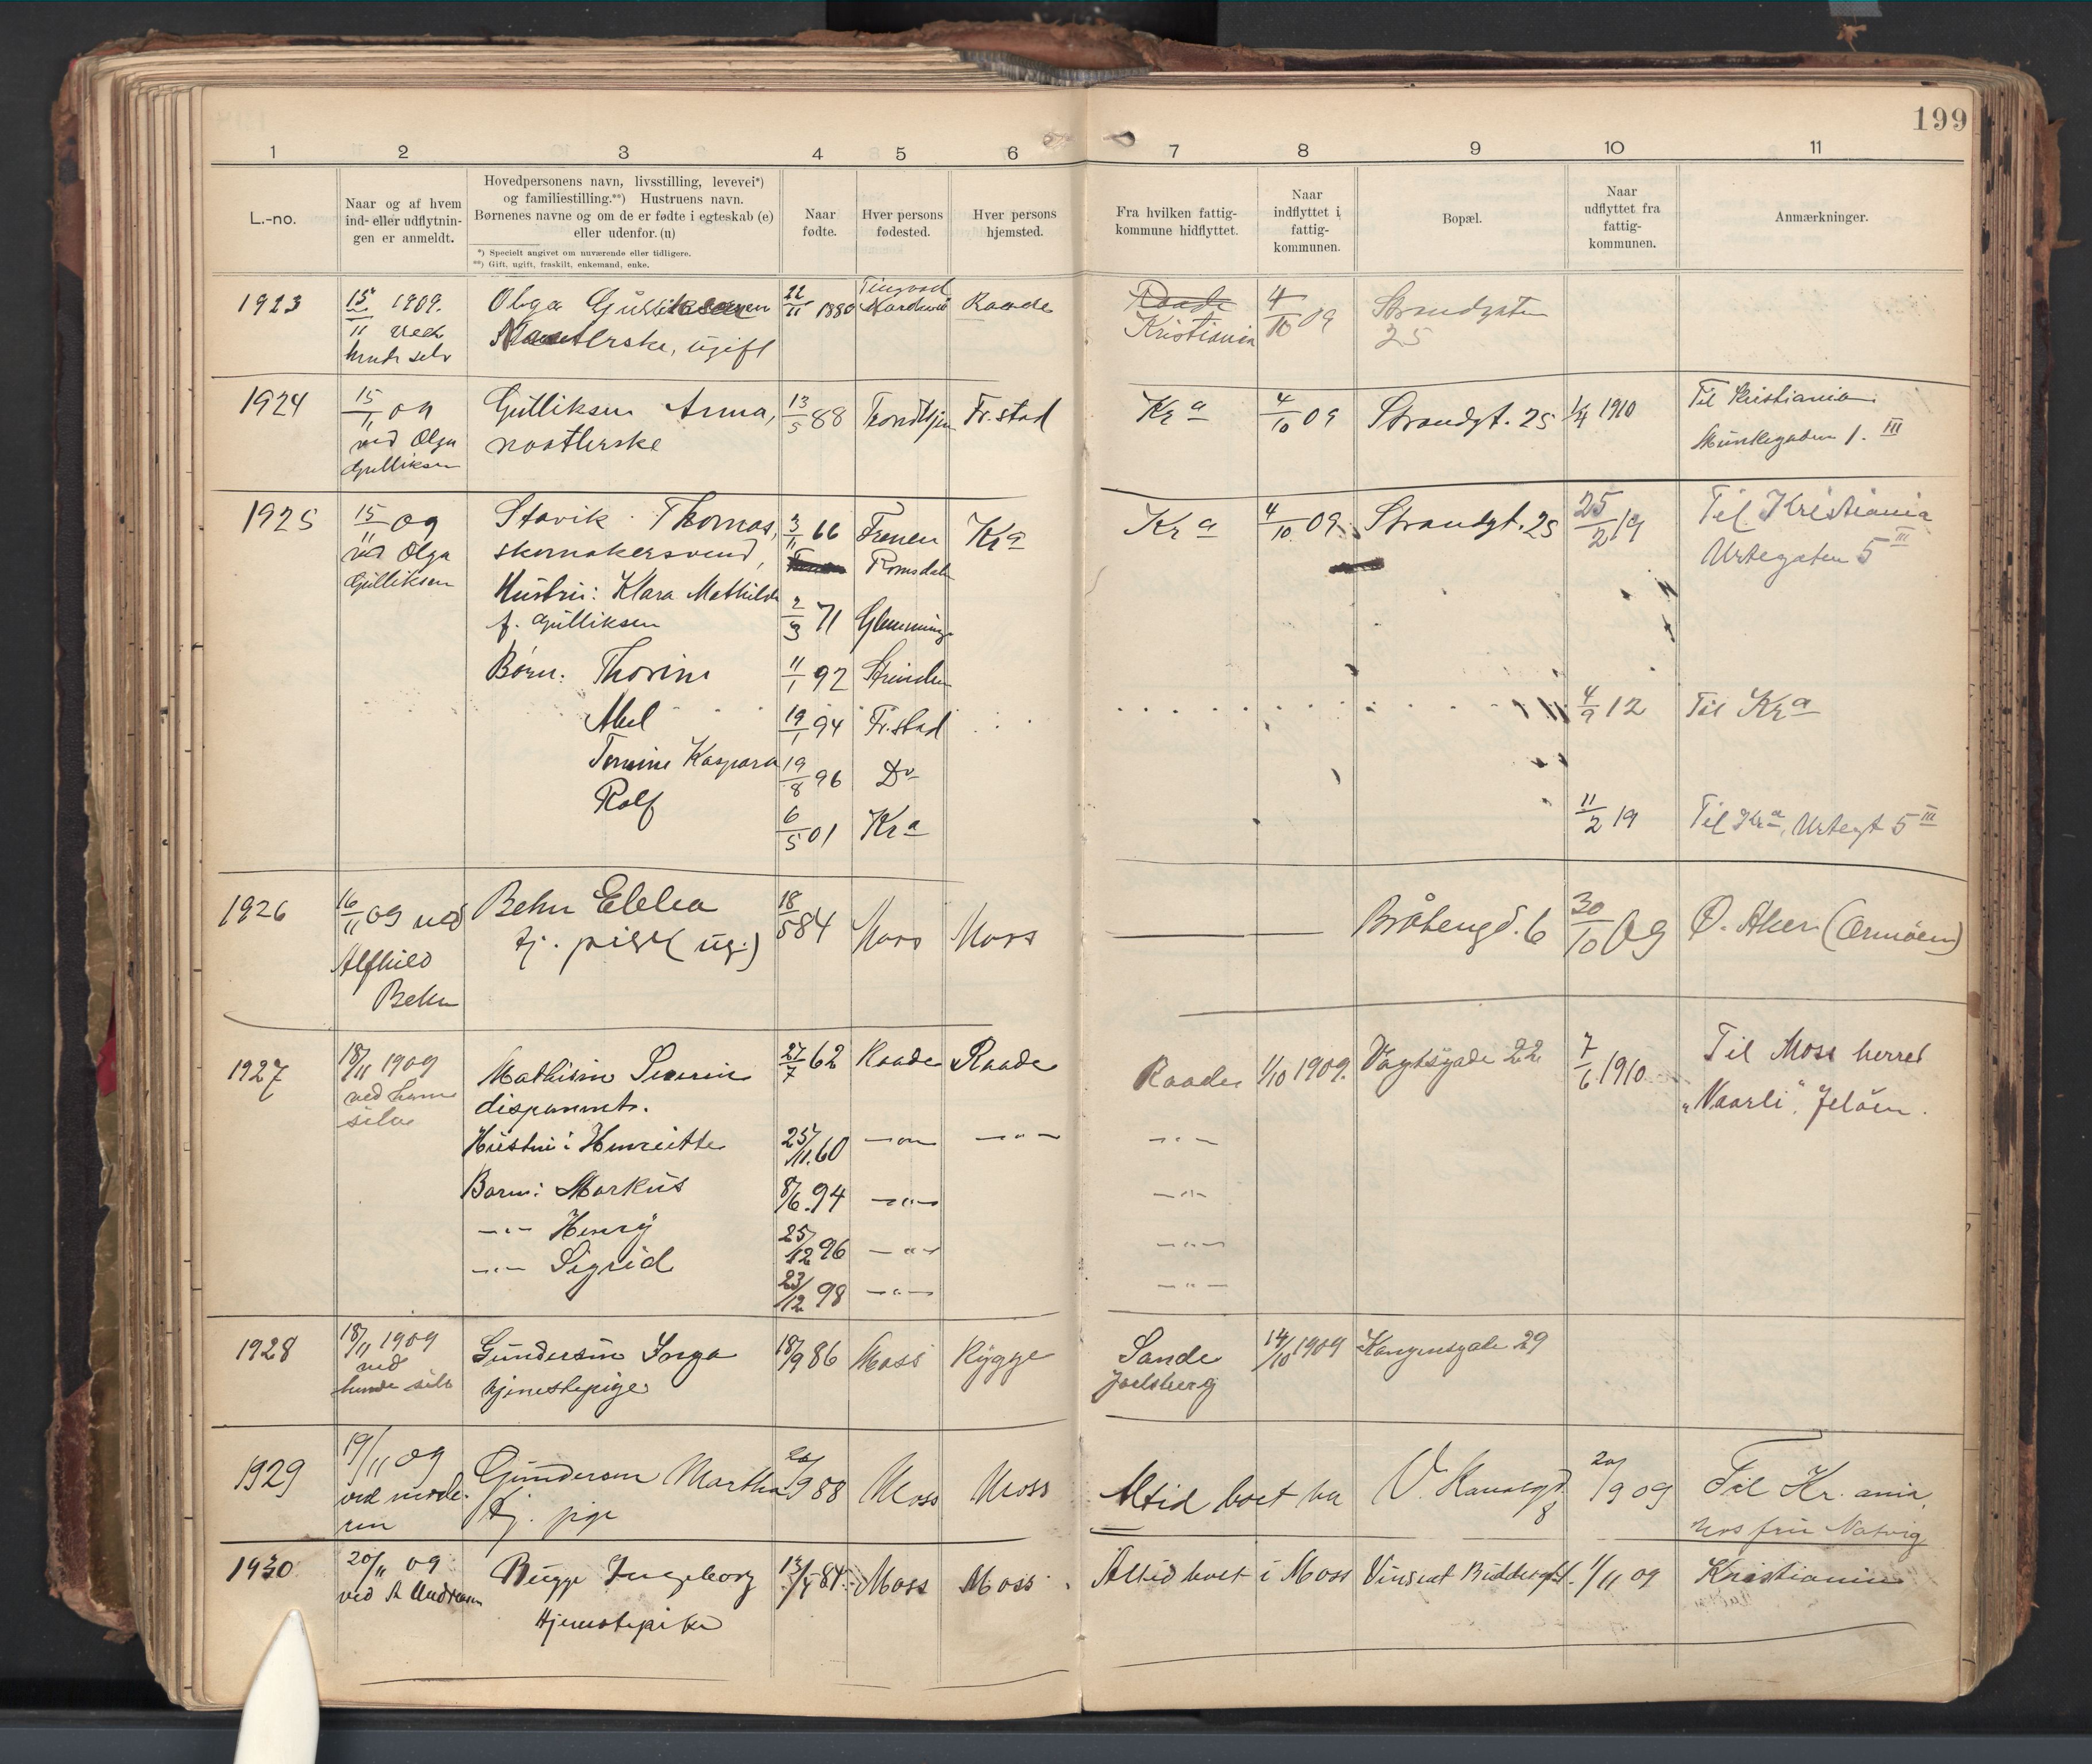 199
1 2 3 4 5 6 7 8 9 10 11
L.-no.
Naar og af hvem
ind- eller udflytnin-
gen er anmeldt.
Hovedpersonens navn, livsstilling, levevei*)
og familiestilling.**) Hustruens navn.
Børnenes navne og om de er fødte i egteskab (e)
eller udenfor. (u)
*) Specielt angivet om nuværende eller tidligere.
**) Gift, ugift, fraskilt, enkemand, enke.
Naar
fødte.
Hver persons
fødested.
Hver persons
hjemsted.
Fra hvilken fattig-
kommune hidflyttet.
Naar
indflyttet i
fattig-
kommunen.
Bopæl.
Naar
udflyttet fra
fattig-
kommunen.
Anmærkninger.
1923 15/11 1909. Olga Gulliksen 22/11 1880 Raade Raade 4/10 09 Strandgaten
ved ugift Kristiania 25
hende selv
1924 15/11 09 Gulliksen Anna, 13/5 88 Trondhjem Fr.stad Kra 4/10 09 Strandgt. 25 1/4 1910 Til Kristiania
ved Olga Munkegaden 1. III
Gulliksen
1925 15/11 09 Stavik Thomas, 3/11 66 Frenen Kra Kra 4/10 09 Strandgt. 25 25/2 19 Til Kristiania
ved Olga skomakersvend, Romsdalen Urtegaten 5 III
Gulliksen Hustru: Klara Mathilde
f. Gulliksen 2/3 71 Glemminge
Børn: Thorine 11/1 92 Strinden
19/1 94 Fr.stad 4/9 12 Til Kra
Kaspara 19/8 96 Do
Rolf 6/5 01 Kra 11/2 19 Til Kra, Urtegt 5 III
1926 16/11 09 ved Behn 18/5 84 Moss Moss Bråtengd. 6 30/10 09 Ø. Aker (Ormöen)
Alfhild tj. pige (ug.)
Behn
1927 18/11 1909 Mathisen Severin 27/7 62 Raade Raade Raade 1/10 1909. Vogtsgade 22 7/6 1910 Til Moss herred
ved ham disponent. "Vaarli", Jeløen.
selv
Hustru: Henriette 25/11. 60 —"— —"— —"—
Barn: Markus 8/6. 94 —"— —"—
—"— Henry 25/12 96 —"— —"—
—"— Sigrid 23/12 98 —"— —"—
1928 18/11 1909 Gundersen Inga 18/9 86 Moss Rygge Sande 14/10 1909 Kongensgade 29
ved tjenestepige Jarlsberg
hende selv
1929 19/11 09 Gundersen Martha 20/9 88 Moss Moss Altid boet her V. Kanalgd. 8 20/9 09 Til Kr.ania,
ved mode- tj. pige hos fru Natvig
ren
1930 20/11 09 Bugge Ingeborg 84. Moss Moss Altid boet i Moss 1/11 09 Kristiania
ved A Andresen tjenestepike